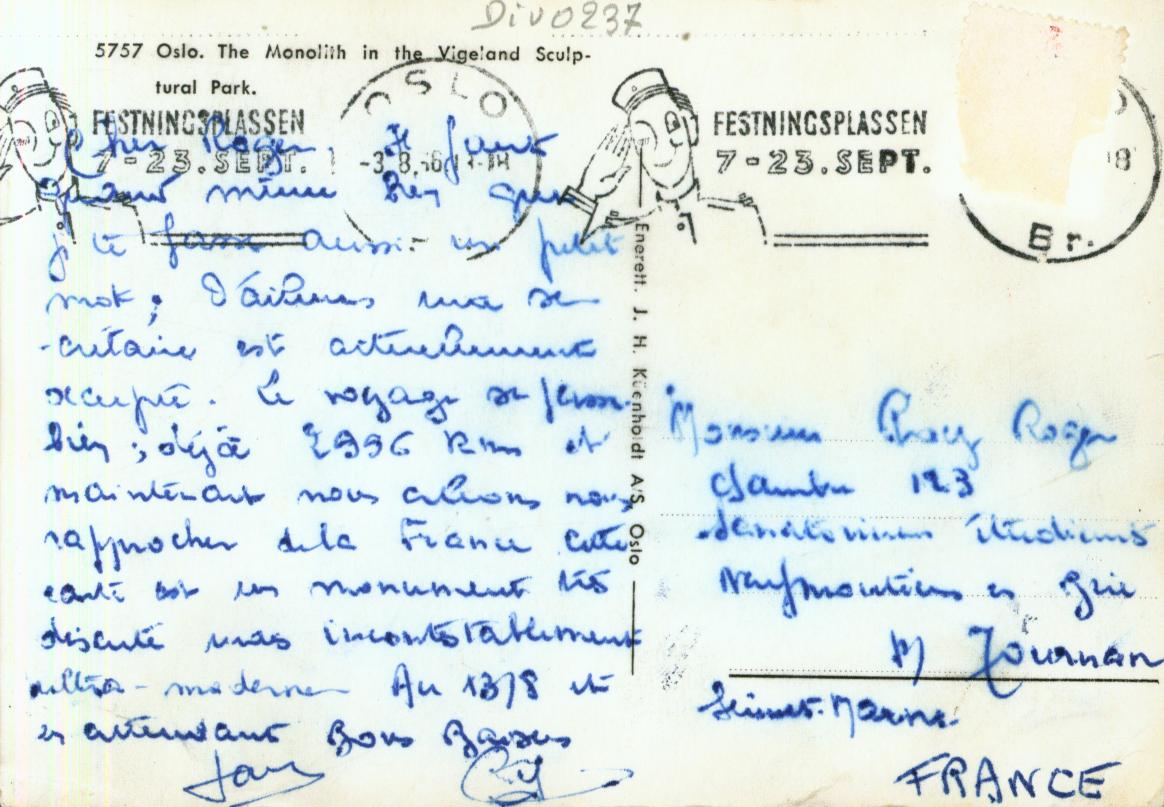 Div0237
5757 Oslo. The Monolith in the Vigeland Sculp-
tural Park.
OSLO
FESTNINGSPLASSEN
7-23.SEPT.
FESTNINGSPLASSEN
7-23.SEPT.
Br.
Cher Roger. Il faut
quand même bien que
je te fasse aussi un petit
mot; d'ailleurs ma se
-crétaire est actuellement
occupée. Le voyage se passe
bien; déjà 2996 Kms et
maintenant nous allons nous
rapprocher de la France cette
carte est un monument très
discuté mais incontestablement
ultra-moderne. Au 13/8 et
en attendant Bons Baisers
Enerett. J. H. Küenholdt A/S, Oslo
Monsieur Roger
Chambre 123
Sanatorium étudiants
Neufmoutiers en Brie
p/ Tournan
Seine et Marne.
FRANCE